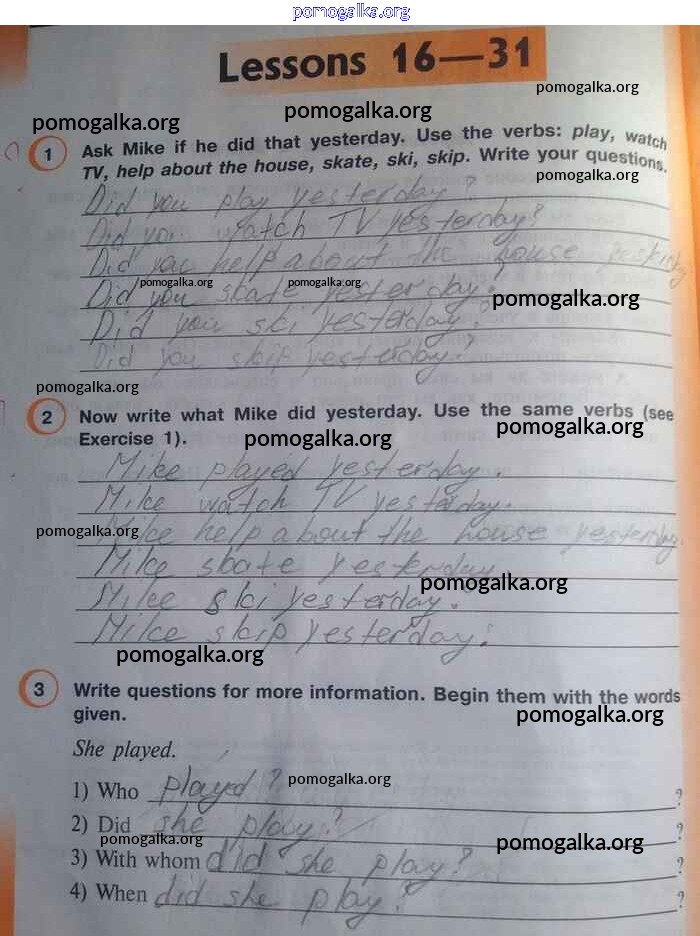 pomogalka.org
Lessons 16—31
pomogalka.org
pomogalka.org
pomogalka.org
1 Ask Mike if he did that yesterday. Use the verbs: play, watch
TV, help about the house, skate, ski, skip. Write your questions.
pomogalka.org
Did you play yesterday?
Did you watch TV yesterday?
Did you help about the house
pomogalka.org
pomogalka.org
Did you skate yesterday?
pomogalka.org
Did you ski yesterday?
Did you skip yesterday?
pomogalka.org
2 Now write what Mike did yesterday. Use the same verbs (see
Exercise 1).
pomogalka.org
pomogalka.org
Mike played yesterday.
Mike watch TV yesterday.
Mike help about the house yesterday.
pomogalka.org
Mike skate yesterday
pomogalka.org
Mike ski yesterday.
Mike skip yesterday.
pomogalka.org
3 Write questions for more information. Begin them with the words
given.
pomogalka.org
She played.
1) Who played? ?
pomogalka.org
2) Did she play? ?
pomogalka.org
pomogalka.org
3) With whom did she play? ?
4) When did she play? ?